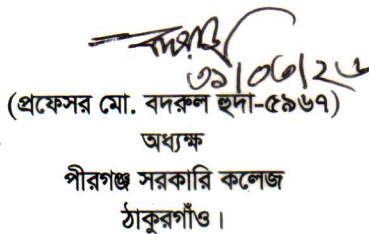 ৩১/০৩/২৬
(প্রফেসর মো. বদরুল হুদা-৫৯৬৭)
অধ্যক্ষ
পীরগঞ্জ সরকারি কলেজ
ঠাকুরগাঁও।